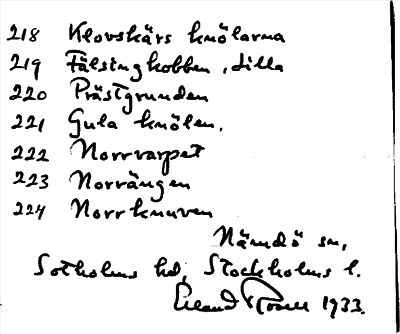 218 Klovskärs knölarna
219 Fälsingkobben, Lilla
220 Prästgrunden
221 Gula knölen.
222 Norrvarpet
223 Norrängen
224 Norrknuven
Nämdö sn,
Sotholms hd, Stockholms l.
1933.